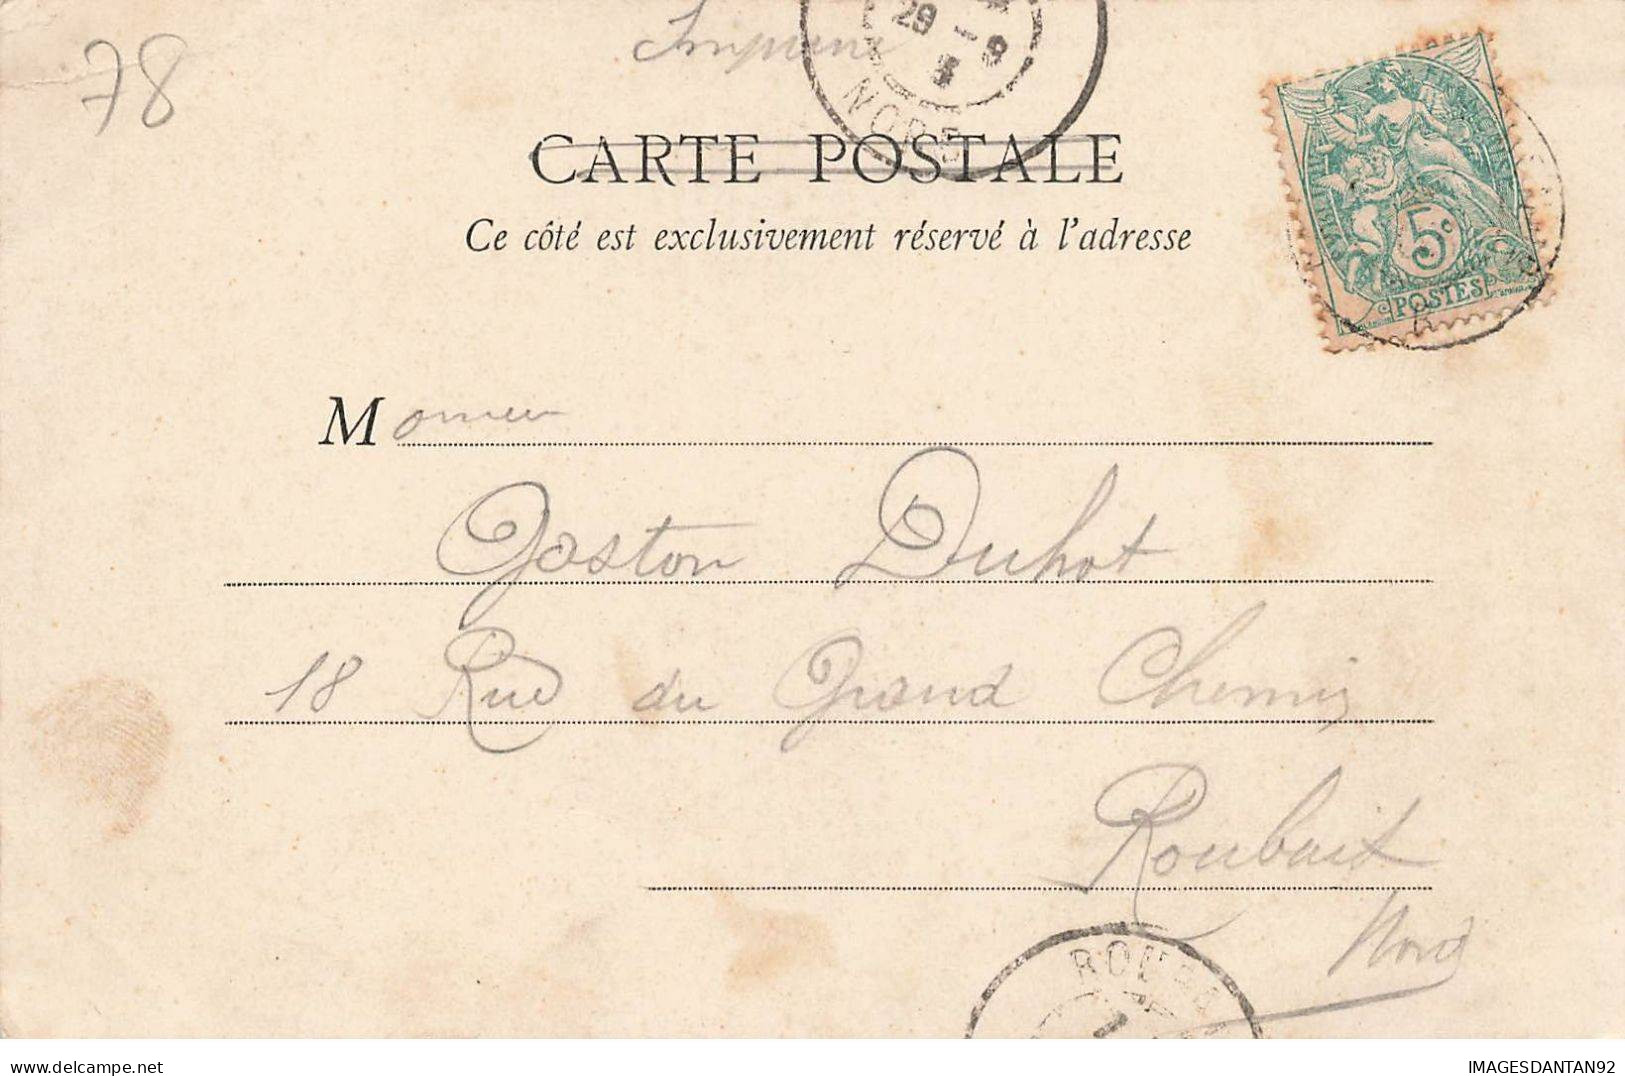 78
Imprimé
29 - 9
NORD
CARTE POSTALE
Ce côté est exclusivement réservé à l'adresse
5c
POSTES
Monsieur
Gaston Duhot
18 Rue du Grand Chemin
Roubaix
Nord
ROUBA
IMAGESDANTAN92